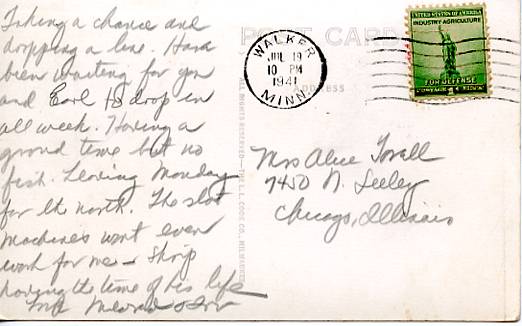 Taking a chance and
dropping a line. Have
been waiting for you
and Earl to drop in
all week. Having a
grand time but no
fish. Leaving Monday
for the north. The slot
machines wont even
work for me -
having the time of his life
POST CARD
ADDRESS
WALKER
JUL 19
10 PM
1941
MINN.
UNITED STATES OF AMERICA
INDUSTRY AGRICULTURE
FOR DEFENSE
POSTAGE 1 CENT
Mrs Alice
7450 N. Seeley
Chicago, Illinois